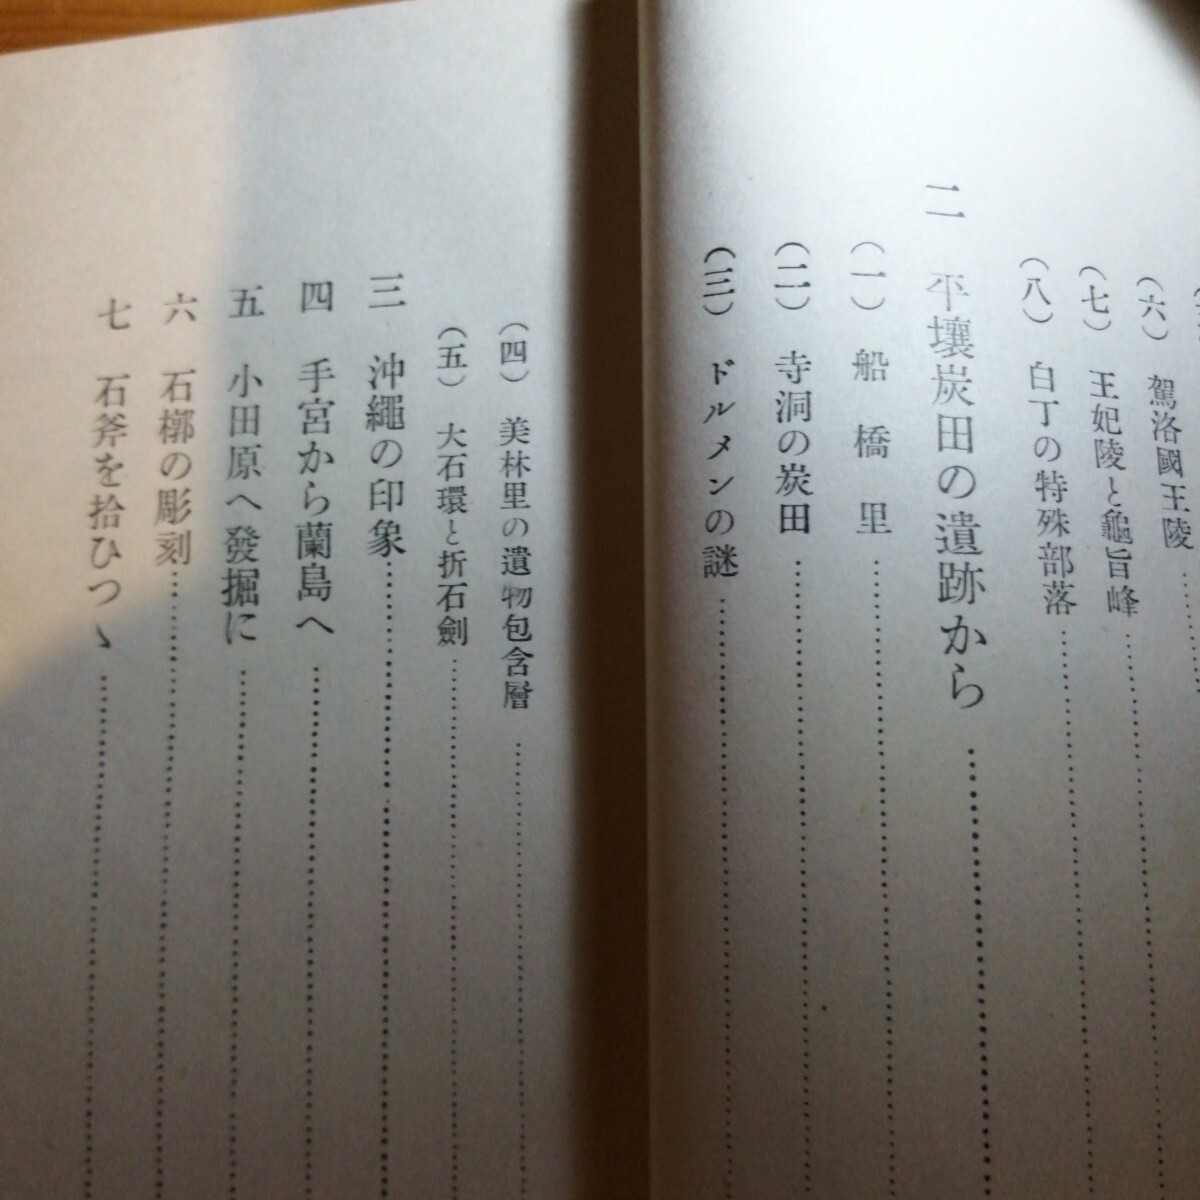 （六）　駕洛國王陵
（七）　王妃陵と龜旨峰
（八）　白丁の特殊部落
二　平壤炭田の遺跡から
（一）　船橋里
（二）　寺洞の炭田
（三）　ドルメンの謎
（四）　美林里の遺物包含層
（五）　大石環と折石劍
三　沖繩の印象
四　手宮から蘭島へ
五　小田原へ發掘に
六　石槨の彫刻
七　石斧を拾ひつゝ